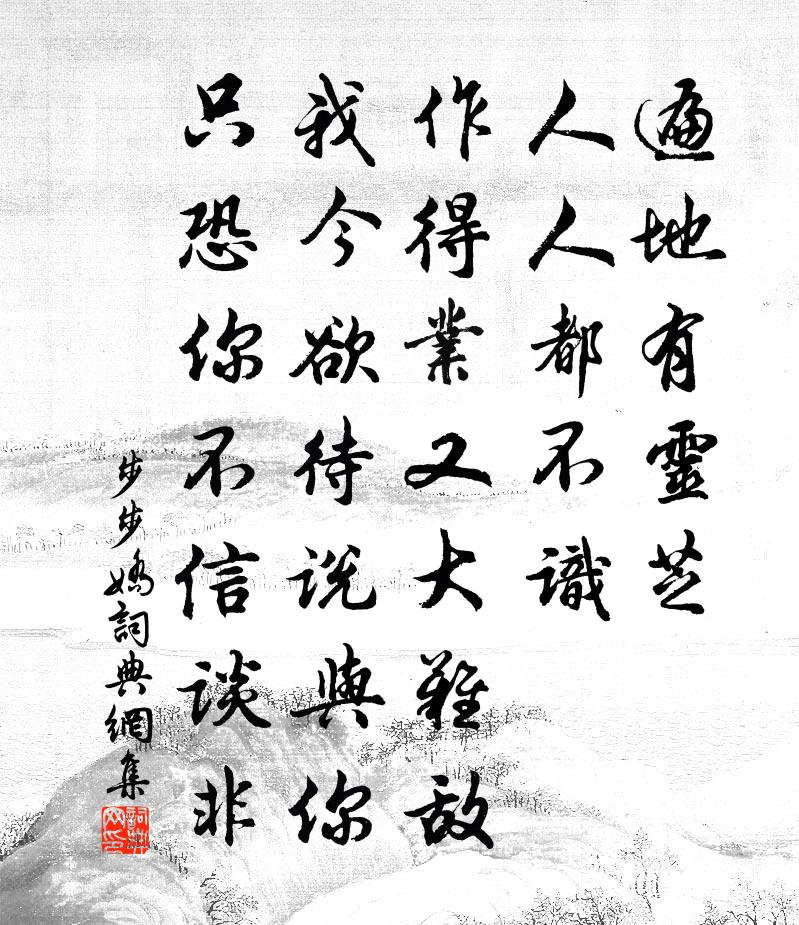 遍地有靈芝
人人都不識
作得業又大難敵
我今欲待説與你
只恐你不信談非
步步嬌詞典網集
詞典
网印